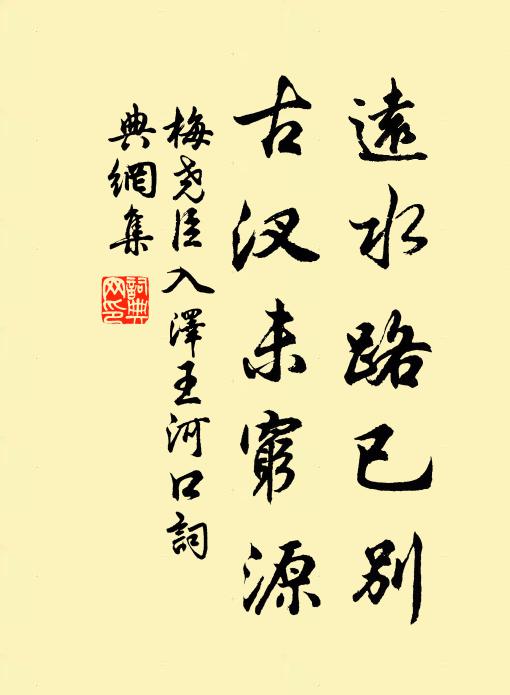 遠水路已別
古汊未窮源
梅尧臣入澤王河口詞
典網集
詞典網印